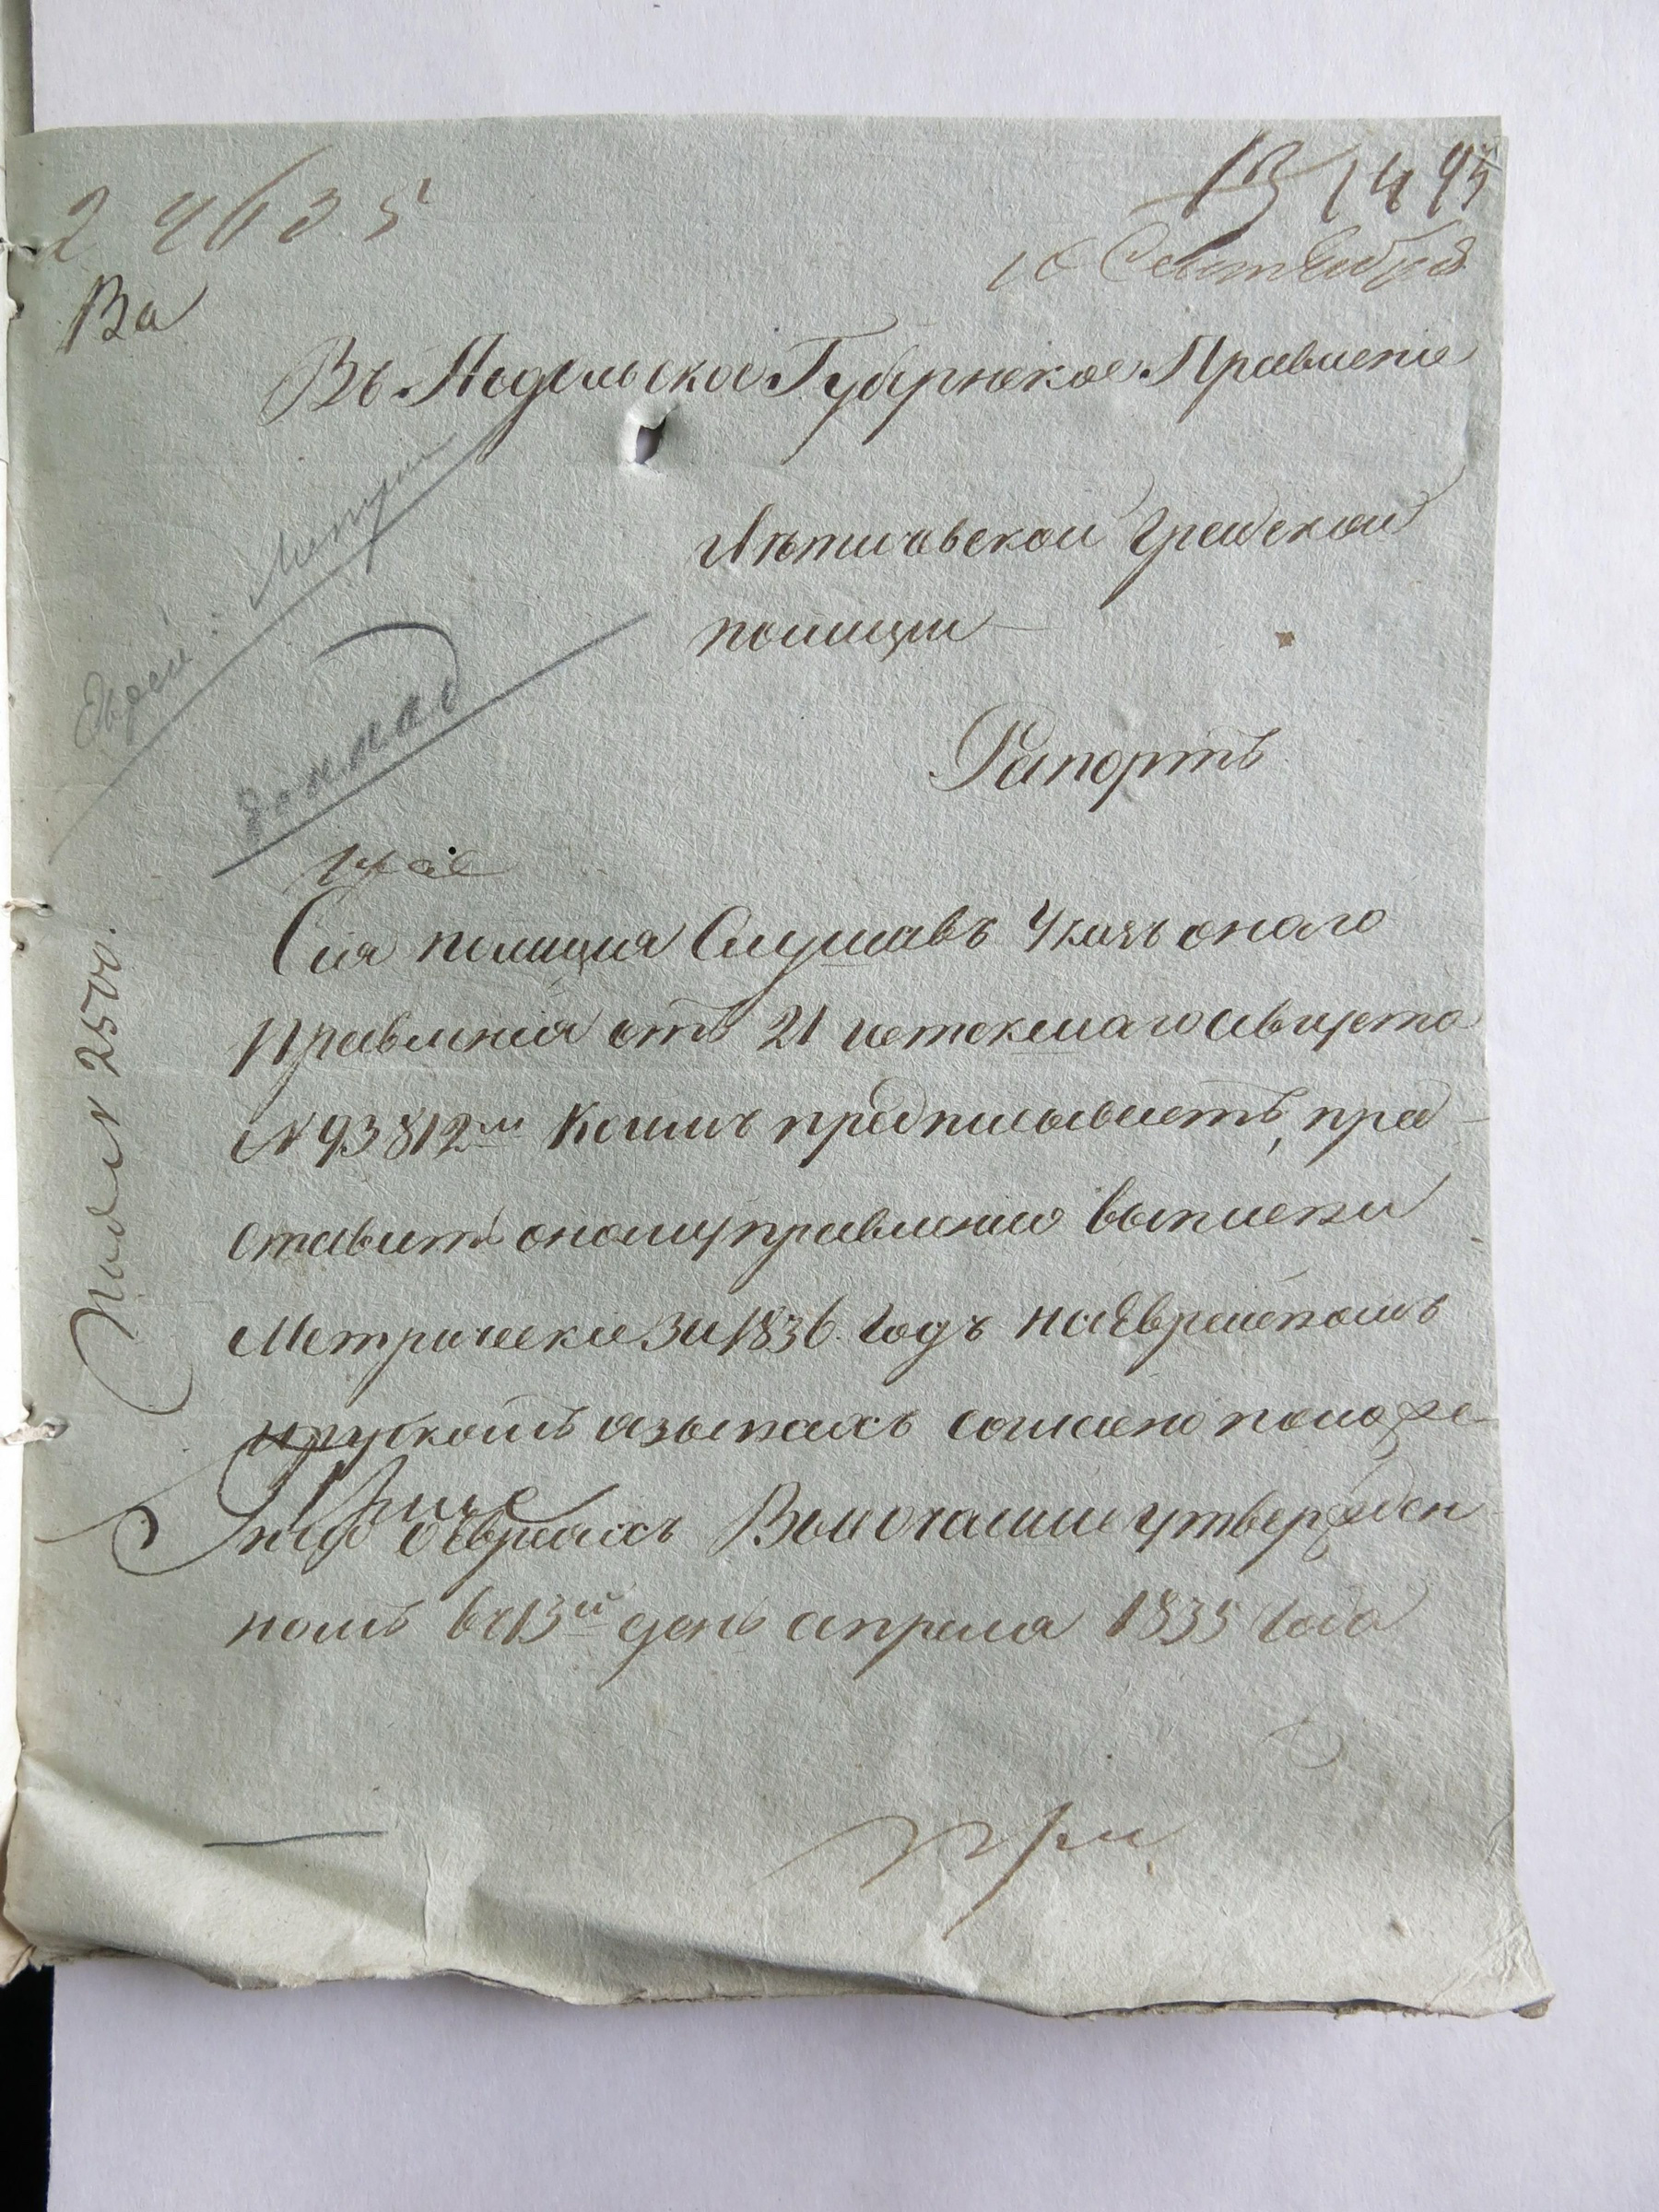 24635
16 Сентября
Ва
Въ Подольское Губернское Правление
Лѣтичовской Градской
полиции
Рапортъ
Еврей: Метрич
доклад
Сия полиция Слушавъ Указъ оного
Правления отъ 21 истекшаго августа
№ 93812м Коимъ предписываетъ, пред-
ставить оному правлению выписки
Метрическіе За 1836. Годъ на Еврейскомъ
ируском азыкахъ согласно положе-
нию о Евреахъ Высочайше утвержден
номъ въ 13й день апреля 1835 Года
при